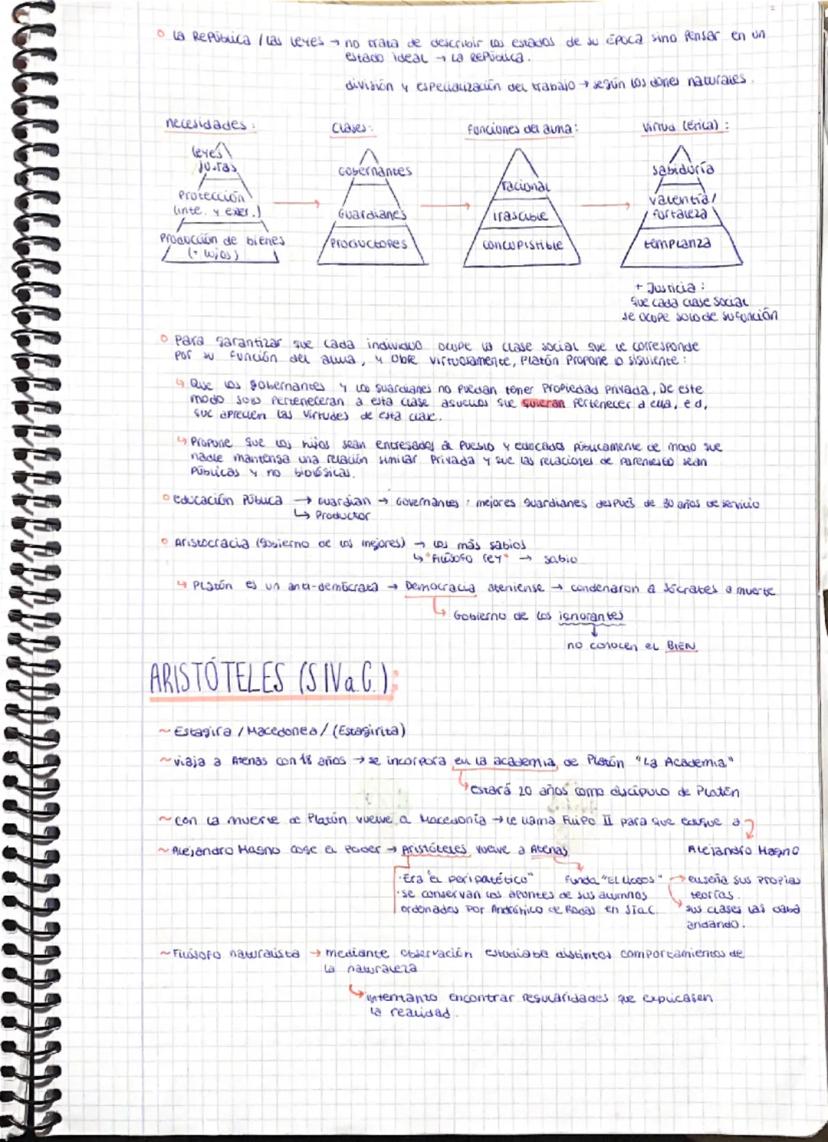 ° La República / Las Leyes → no trata de describir los estados de su época sino pensar en un
estado ideal → La República.
división y especialización del trabajo → según los dones naturales.
necesidades:
Clases:
Funciones del alma:
Virtud (ética):
leyes
justas
Protección
(inte. y exter.)
Producción de bienes
(+ lujos)
Gobernantes
Guardianes
Productores
racional
irascible
concupistible
sabiduría
valentía/
fortaleza
templanza
+ Justicia:
que cada clase social
se ocupe solo de su función
° Para garantizar que cada individuo ocupe la clase social que le corresponde
por su función del alma, y obre virtuosamente, Platón Propone lo siguiente:
↳ Que los gobernantes y los guardianes no puedan tener Propiedad Privada, De este
modo solo perteneceran a esta clase aquellos que quieran pertenecer a ella, e.d,
que aprecien las virtudes de esta clase.
↳ Propone que los hijos sean entregados al Pueblo y educados públicamente de modo que
nadie mantenga una relación similar Privada y que las relaciones de Parentesco sean
Públicas y no biológicas.
° Educación Pública → Guardian → Governantes: mejores guardianes después de 30 años de servicio
↳ Productor
° Aristocracia (Gobierno de los mejores) → los más sabios
↳ "Filósofo rey" → sabio
↳ Platón es un anti-demócrata → Democracia ateniense → condenaron a Sócrates a muerte
↳ Gobierno de los ignorantes
no conocen el BIEN
ARISTÓTELES (S IV a.C.):
~ Estagira / Macedonea / (Estagirita)
~ viaja a Atenas con 18 años → se incorpora en la academia de Platón "La Academia"
↳ estará 20 años como discípulo de Platón
~ Con la muerte de Platón vuelve a Macedonia → le llama Filipo II para que eduque a
Alejandro Magno
~ Alejandro Magno coge el poder → Aristóteles vuelve a Atenas
· Era "el peripatético"
Funda "El Liceos" → enseña sus propias
teorías.
· se conservan los apuntes de sus alumnos
ordenados por Andrónico de Rodas en S I a.C.
↳ sus clases las daba
andando.
~ Filósofo naturalista → mediante observación estudiaba distintos comportamientos de
la naturaleza
↳ intentanto encontrar regularidades que explicasen
la realidad.